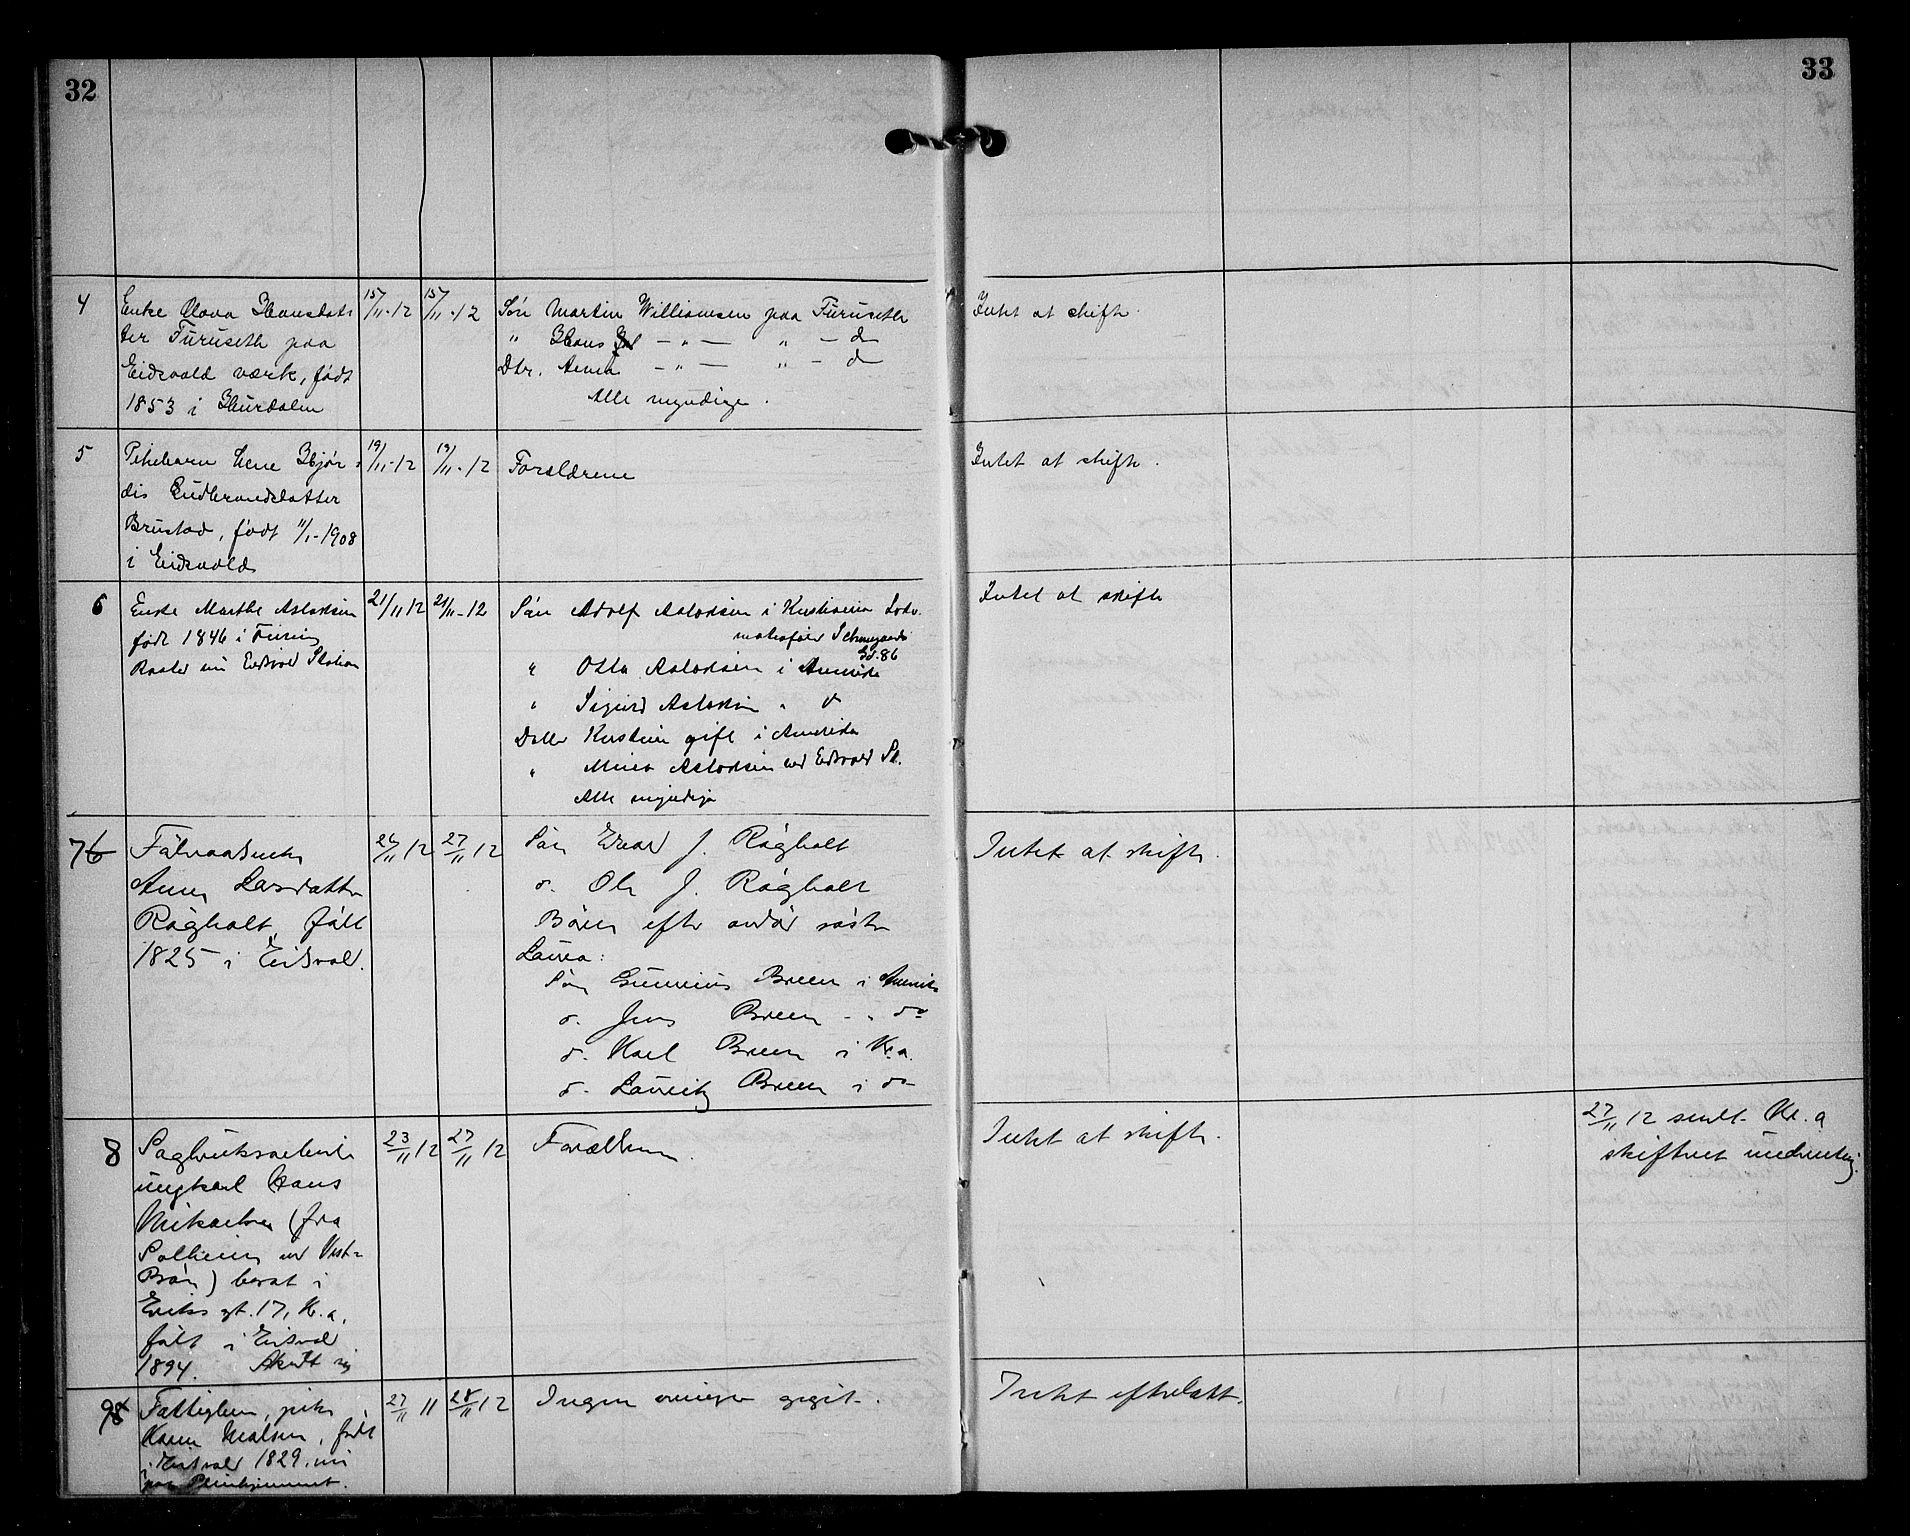 32
33
4
Enke Olava Hansdat-
ter Furuseth paa
Eidsvold værk, født
1853 i Hurdalen
15/11-12
15/11-12
Søn Martin Williamsen paa Furuseth
" Hans - " - " - do
Dtr. Anna - " - " - do
Alle myndige.
Intet at skifte.
5
Pikebarn Lene Hjør-
dis Gudbrandsdatter
Brustad, født 11/1-1908
i Eidsvold
19/11-12
19/11-12
Forældrene
Intet at skifte.
6
Enke Marthe Aslaksen
født 1846 i
Eidsvold Station
21/11 12
21/11-12
Søn Adolf Aslaksen i Kristiania Loko-
motivfører Schweigaards
Gd. 86
" Otto Aslaksen i Amerika
" Sigurd Aslaksen " do
Datter Kristine gift i Amerika
" Mina Aslaksen ved Eidsvold St.
Alle myndige
Intet at skifte
7
Anne Larsdatter
Råholt, født
1825 i Eidsvold.
26/11 12
27/11 12
Søn Edvard J. Rågholt
d. Ole J. Rågholt
Børn efter avdød søster
Laura:
Søn Gunnerius Breen i Amerika
d. Jens Breen - " do
d. Karl Breen i Kr.a.
d. Lauritz Breen i do
Intet at skifte.
8
Sagbruksarbeider
ungkarl Hans
Mikaelsen (fra
Solheim ved Vest-
Bråten) bosat i
Eriks gt. 17, Kr.a,
født i Eidsvold
1894.
23/11 12
27/11 12
Forældrene.
Intet at skifte.
27/11 12 sendt Kr.a
skifteret underretning.
9
Fattiglem, pike
Karen Malsen, født
i Eidsvold 1829, nu
paa Pleiehjemmet.
27/11 11
28/11 12
Ingen arvinger opgit.
Intet efterlatt.